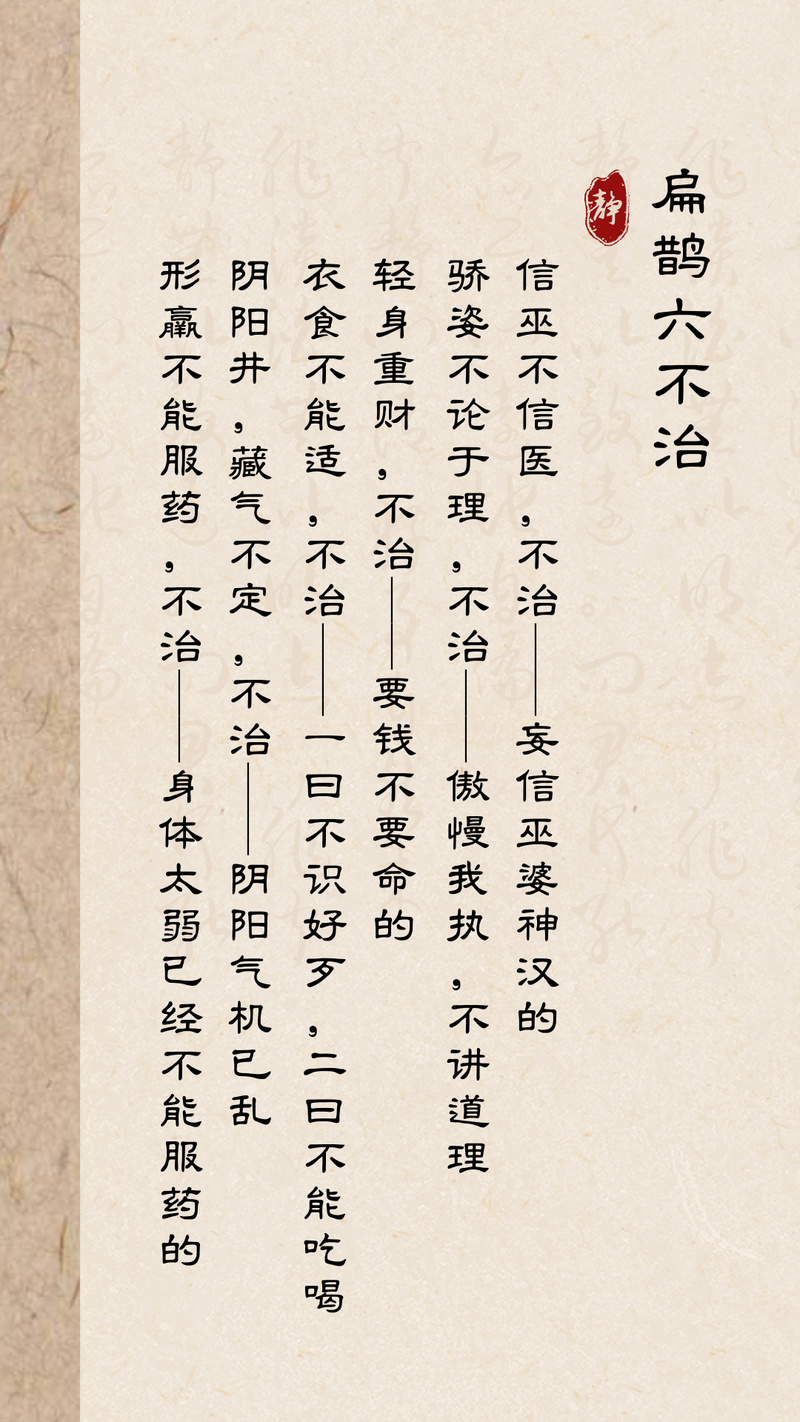 扁鹊六不治
静
信巫不信医，不治——妄信巫婆神汉的
骄姿不论于理，不治——傲慢我执，不讲道理
轻身重财，不治——要钱不要命的
衣食不能适，不治——一曰不识好歹，二曰不能吃喝
阴阳井，藏气不定，不治——阴阳气机已乱
形羸不能服药，不治——身体太弱已经不能服药的